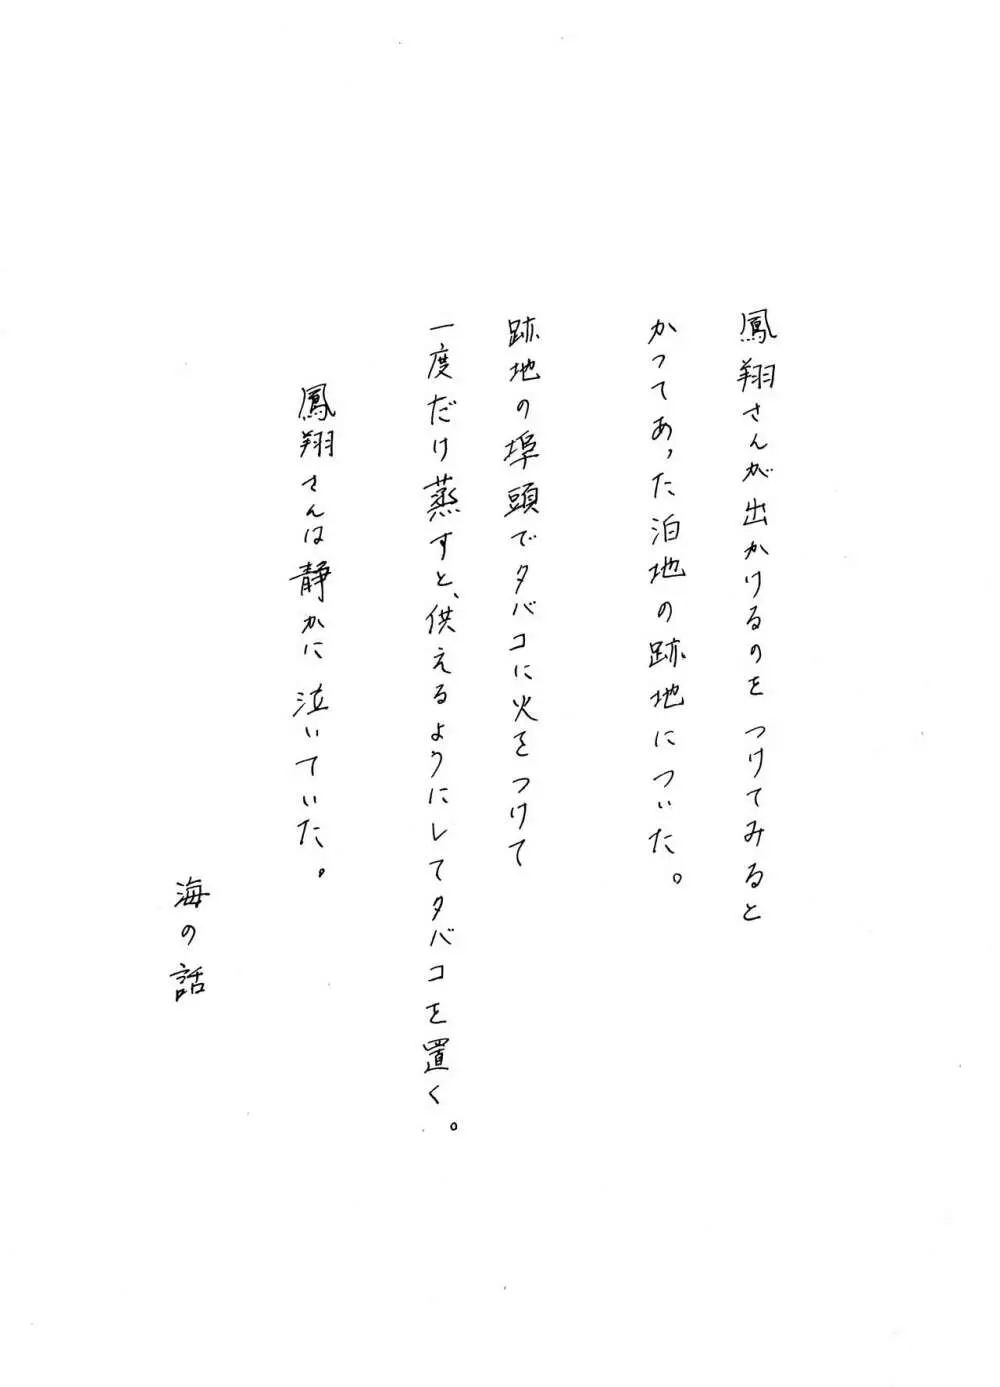 鳳翔さんが出かけるのをつけてみると
かつてあった泊地の跡地についた。
跡地の埠頭でタバコに火をつけて
一度だけ蒸すと、供えるようにしてタバコを置く。
鳳翔さんは静かに泣いていた。
海の話